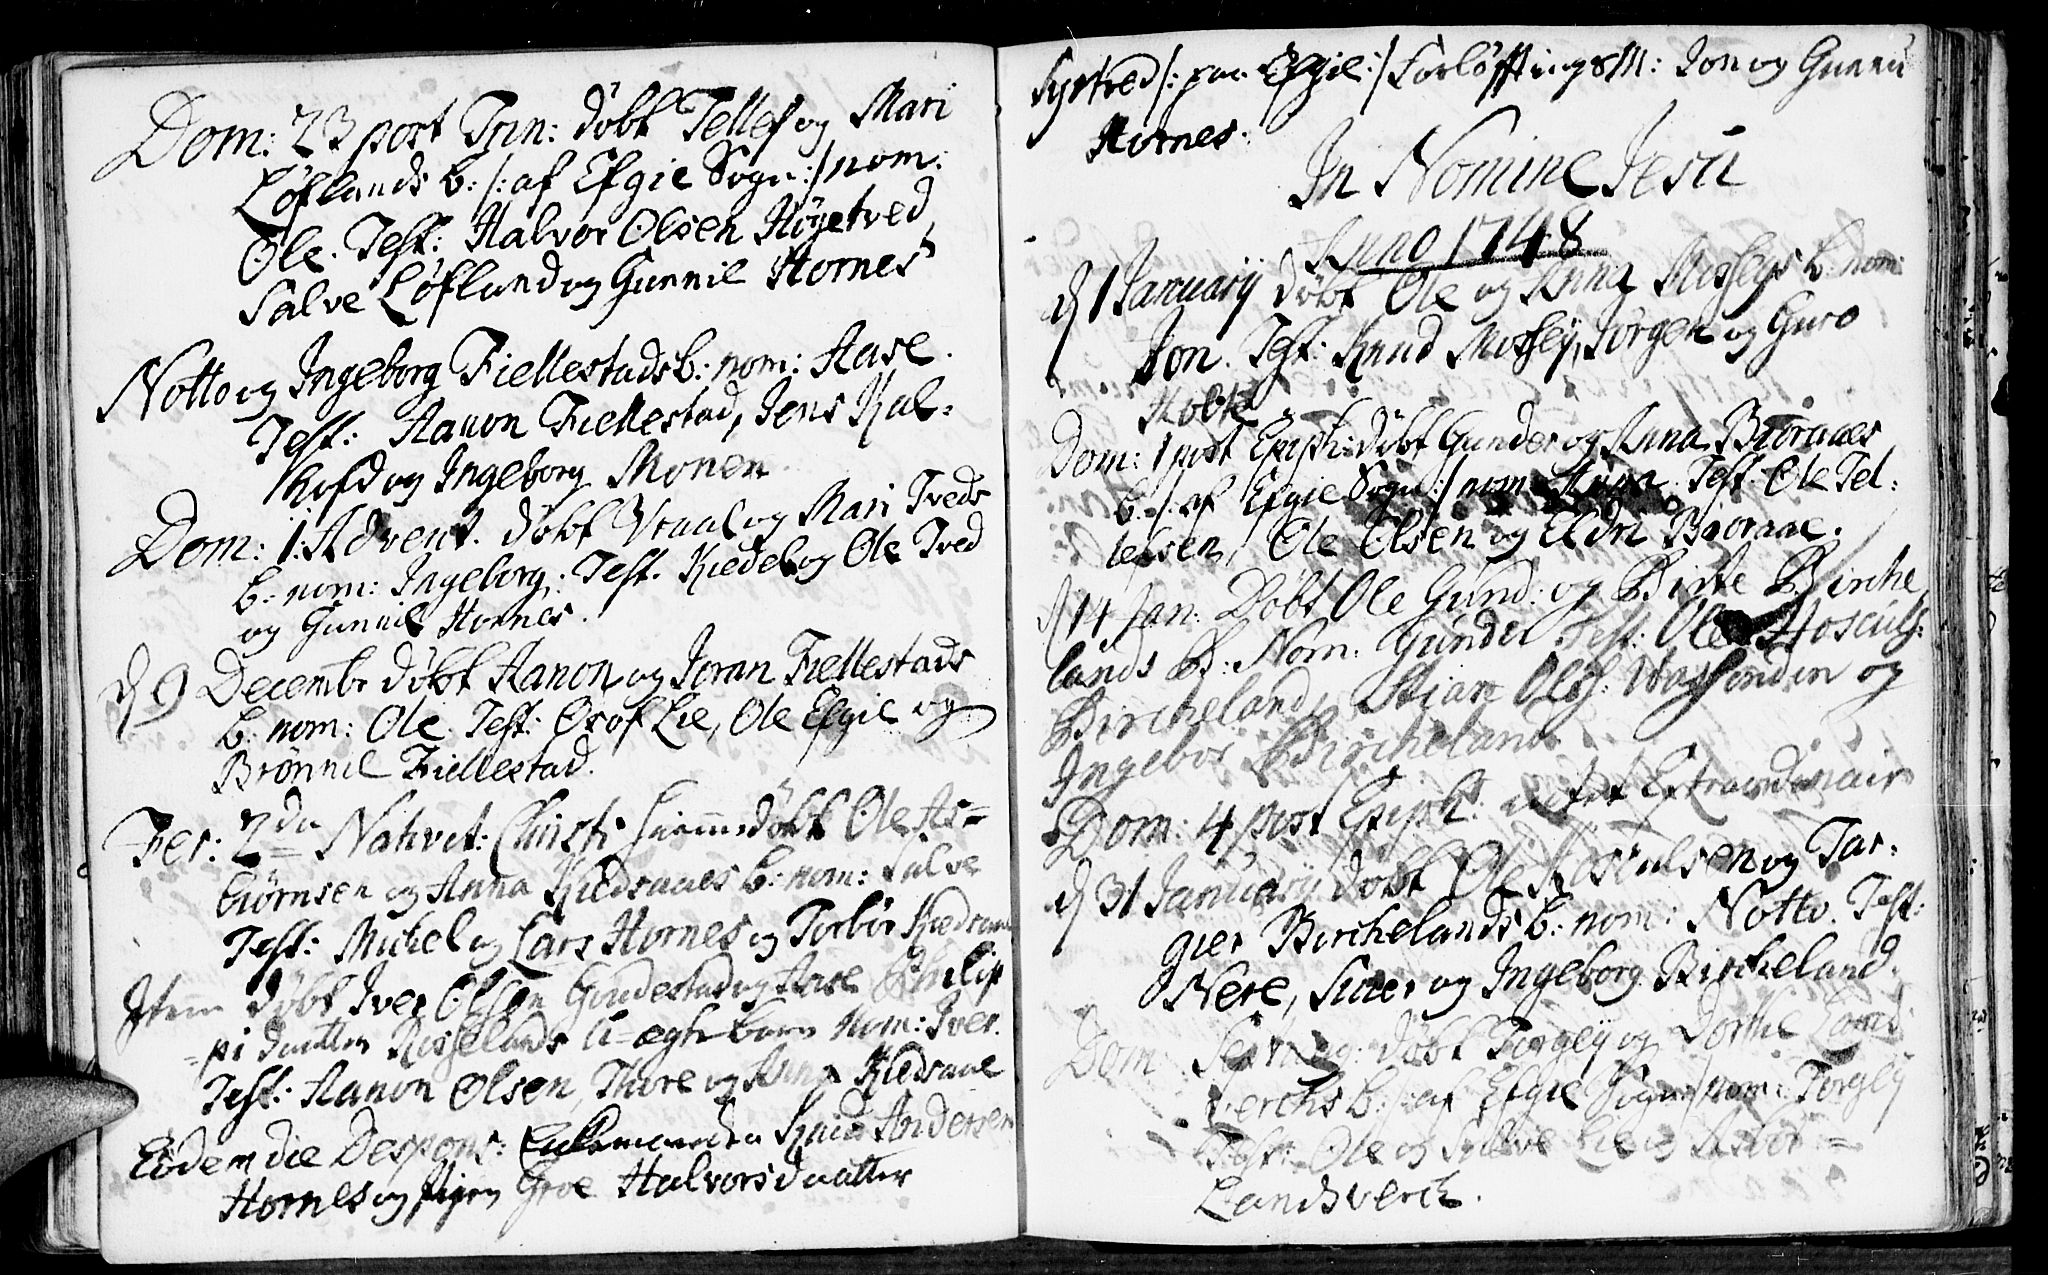 Dom: 23 post Trin: døbt Tellef og Mari
Løflands b: /: af Efgie Sogn :/ nom:
Ole. Test: Halvor Olsen Høgetved,
Salve Løfland og Gunnil Hornes
Notto og Ingeborg Fiellestads b: nom: Aase.
Test: Aanon Fiellestad, Jens Kal-
hofd og Ingeborg Monen
Dom: 1. Advent. døbt Vraal og Mari Tveds
b: nom: Ingeborg. Test. Kiedel og Ole Tved
og Gunnil Hornes.
d 9 Decembr døbt Aanon og Joran Fiellestads
b: nom: Ole. Test: Osof Lie, Ole Efgie og
Brønnil Fiellestad.
Fer: 2da Nativit: Christi døbt Ole As=
biørnsen og Anna Kiedsaaes b: nom: Salve
Test: Michel og Lars Hornes og Torbør Kiedsaae
Item døbt Iver Olsen Gundestad og Aase Philip
=pi daatter Risselands U=ægte barn nom: Iver.
Test: Aanon Olsen, Thore og Anna Kiedsaae
Eodem die Despons: Enkemanden Knud Andersen
Hornes og Pigen Groe Halvorsdaatter
/: paa Efgie :/ Forløftnings M: Jon og Gunnu
Hornes.
In Nomine Jesu
Anno 1748
d 1 Januarij døbt Ole og Anna Mosseys b: nom:
Jon. Test: Knud Mossey, Jørgen og Guro
Holte
Dom: 1 post Epiph: døbt Gunder og Anna Bioraaes
b: /: af Efgie Sogn :/ nom: Anna. Test. Ole Tel:
lefsen, Ole Olsen og Eldri Bioraae.
d 14 Jan: Døbt Ole Gund: og Birte Birche
lands B: Nom: Gunder Test: Ole Aoseuls:
Bircheland, Stian Ols: Wassenden og
Ingebor Bircheland
Dom: 4 post Epiph: Extraordinair
d 31 Januarij døbt Ole Aosulsen og Tar:
gier Birchelands b: nom: Notto. Test:
Nere, Siver og Ingeborg Bircheland.
Dom: Septuag: døbt Torgey og Dorthe Lands
verchs b: /: af Efgie Sogn :/ nom: Torgey
Test: Ole og Salve Lie og
Landsverch.